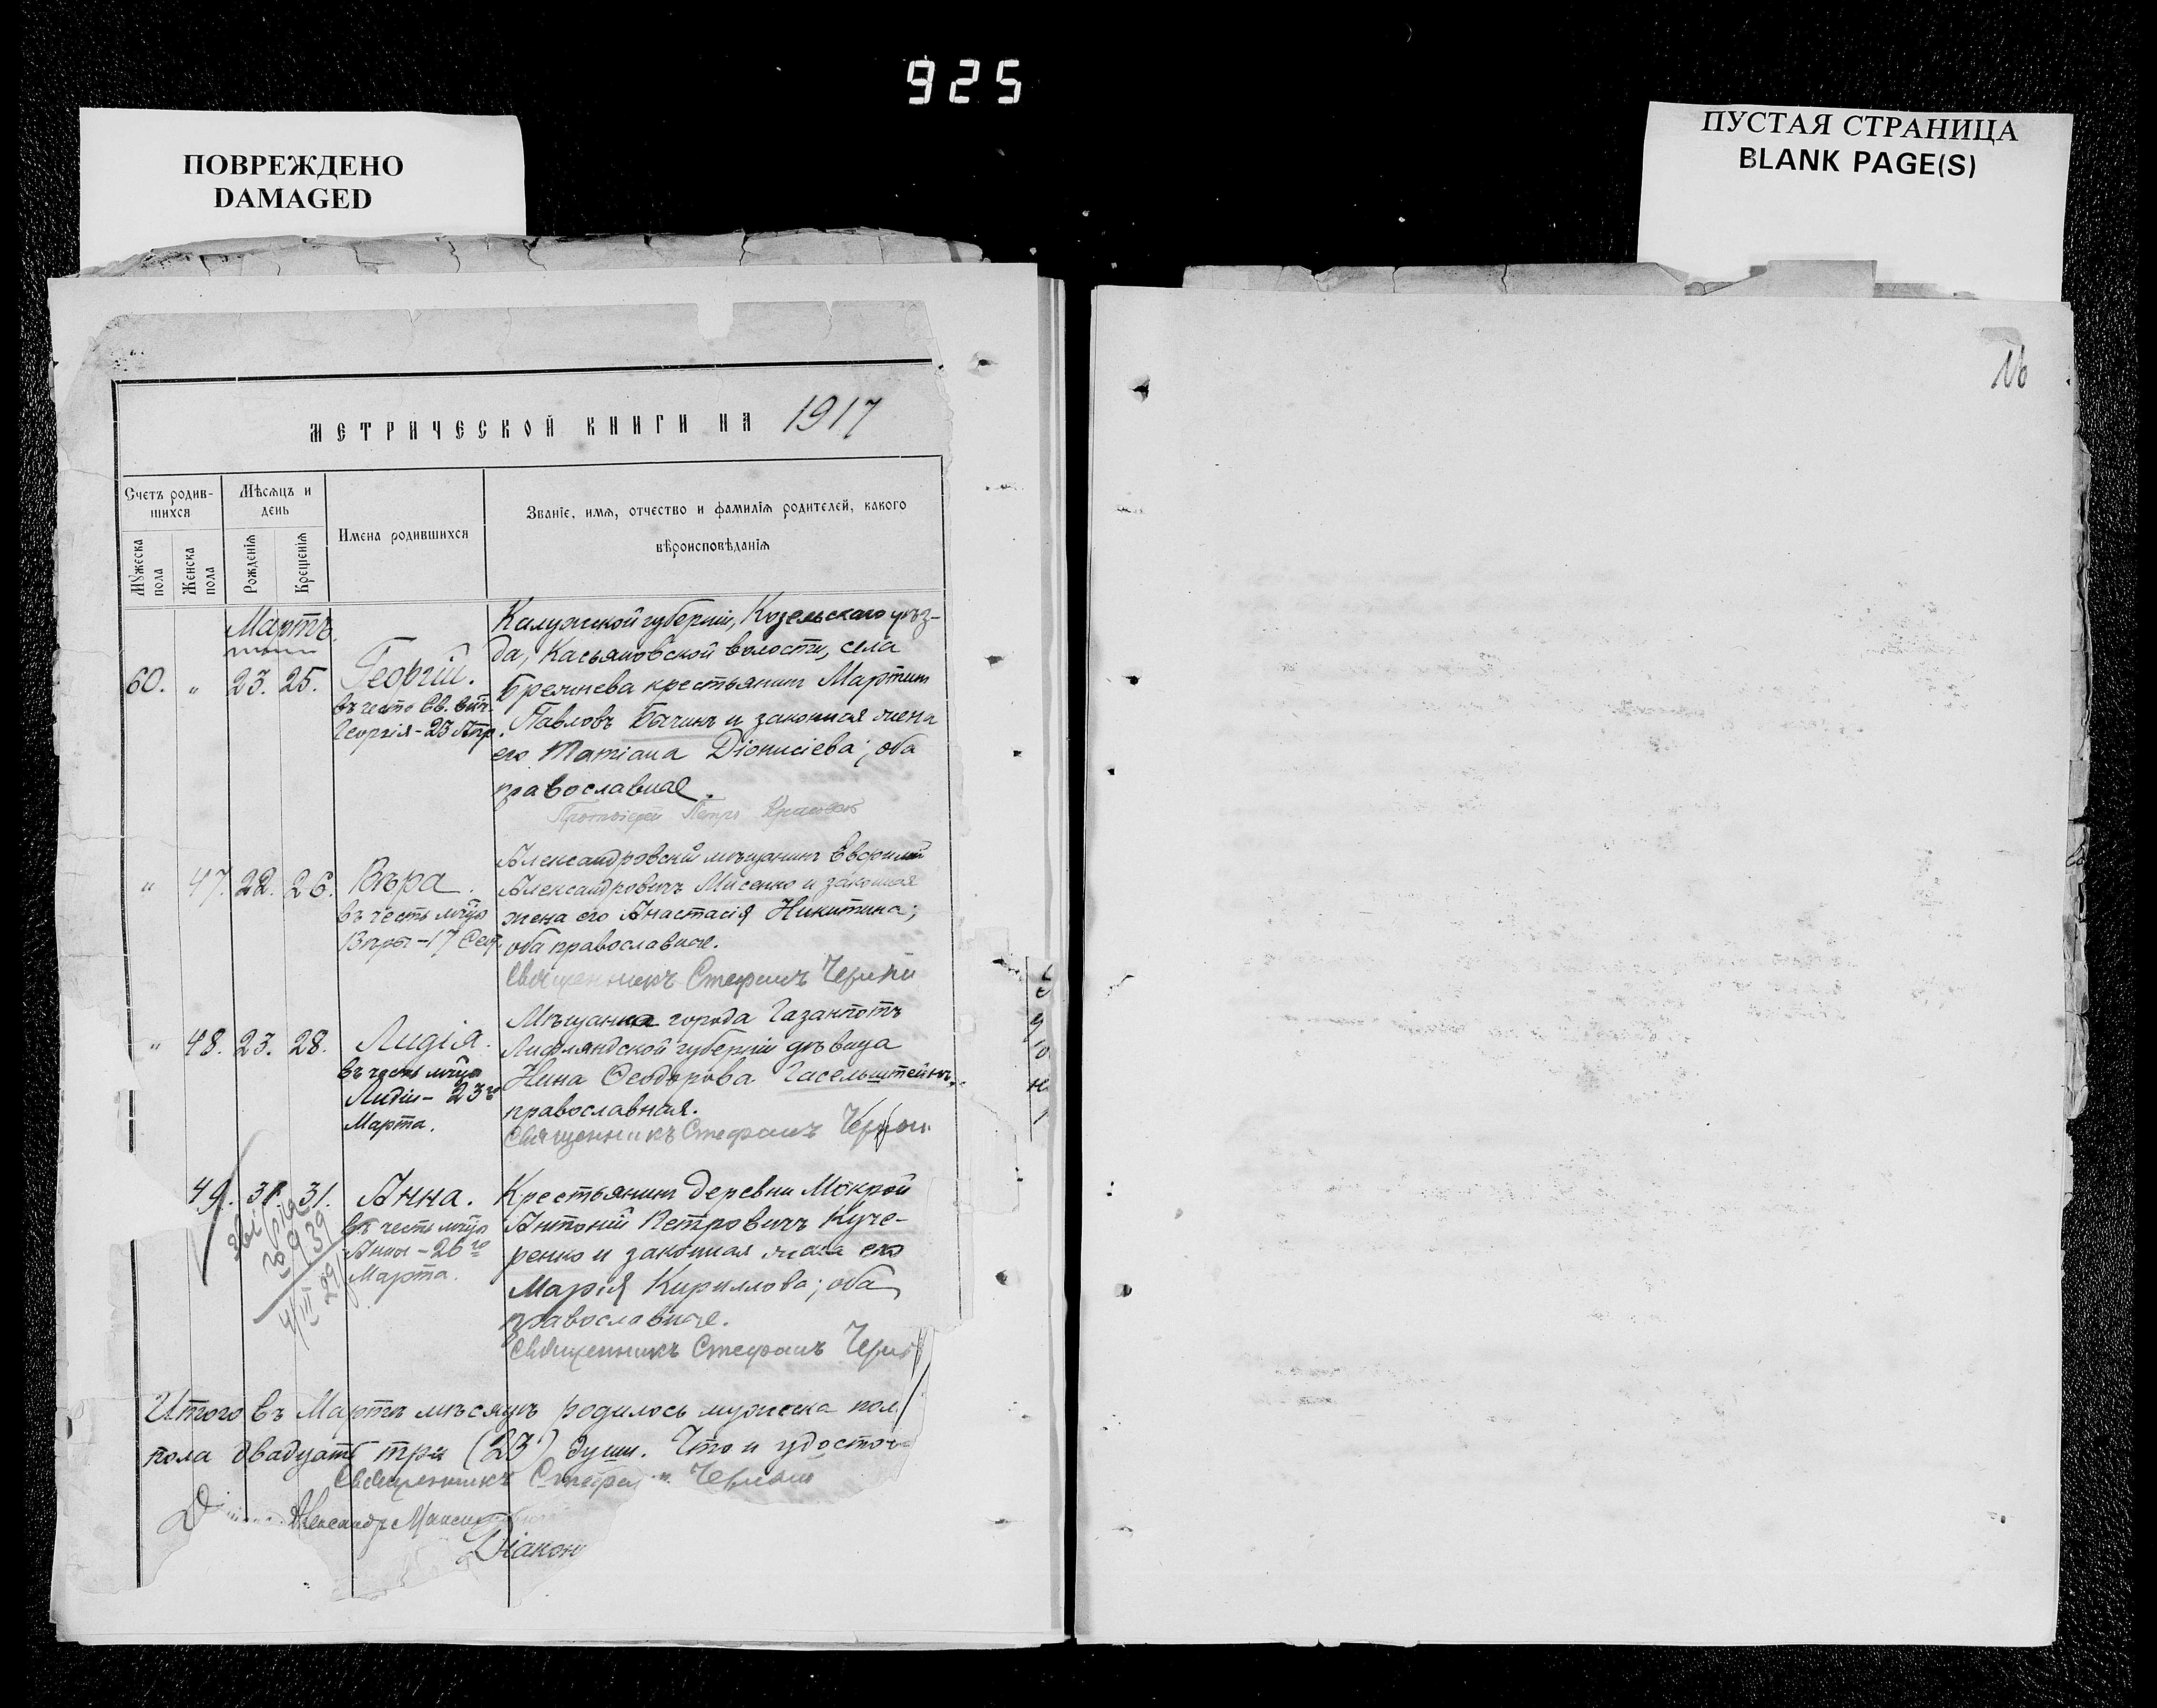 925
ПОВРЕЖДЕНО
DAMAGED
ПУСТАЯ СТРАНИЦА
BLANK PAGE(S)
МЕТРИЧЕСКОЙ КНИГИ НА 1917
Счетъ родив-
шихся
Мужеска
пола
Женска
пола
Мѣсяцъ и
день
Рожденія
Крещенія
Имена родившихся
Званіе, имя, отчество и фамилія родителей, какого
вѣроисповѣданія
Мартъ
60. " 23. 25. Георгій.
въ честь Св. Вмч.
Георгія - 23 Апр.
Калужской губерніи, Козельскаго уѣз-
да, Касьяновской волости, села
крестьянинъ Мартин
Павловъ Бычинъ и законная жена
его Татіана Діонисіева; оба
православные.
Протоіерей Петръ
" 47. 22. 26. Вѣра.
въ честь мчцы
Вѣры - 17 Сент.
Александровскій мѣщанинъ Евфимій
Александровичъ Мисенко и законная
жена его Анастасія Никитина;
оба православные.
Священникъ Стефанъ
" 48. 23. 28. Лидія.
въ честь мчцы
Лидіи - 23го
Марта.
Мѣщанка города Газанпотъ
Лифляндской губерніи дѣвица
Нина Ѳеодорова Гасельштейнъ,
православная.
Священникъ Стефанъ
49. 31. 31. Анна.
въ честь мчцы
Анны - 26го
Марта.
Крестьянинъ деревни Мокрой
Антоній Петровичъ Куче-
ренко и законная жена его
Марія Кириллова; оба
православные.
Священникъ Стефанъ
Итого въ Мартѣ мѣсяцѣ родилось мужеска пол
пола двадцать три (23) души. Что и удостов
Священникъ
Александр
Діакон